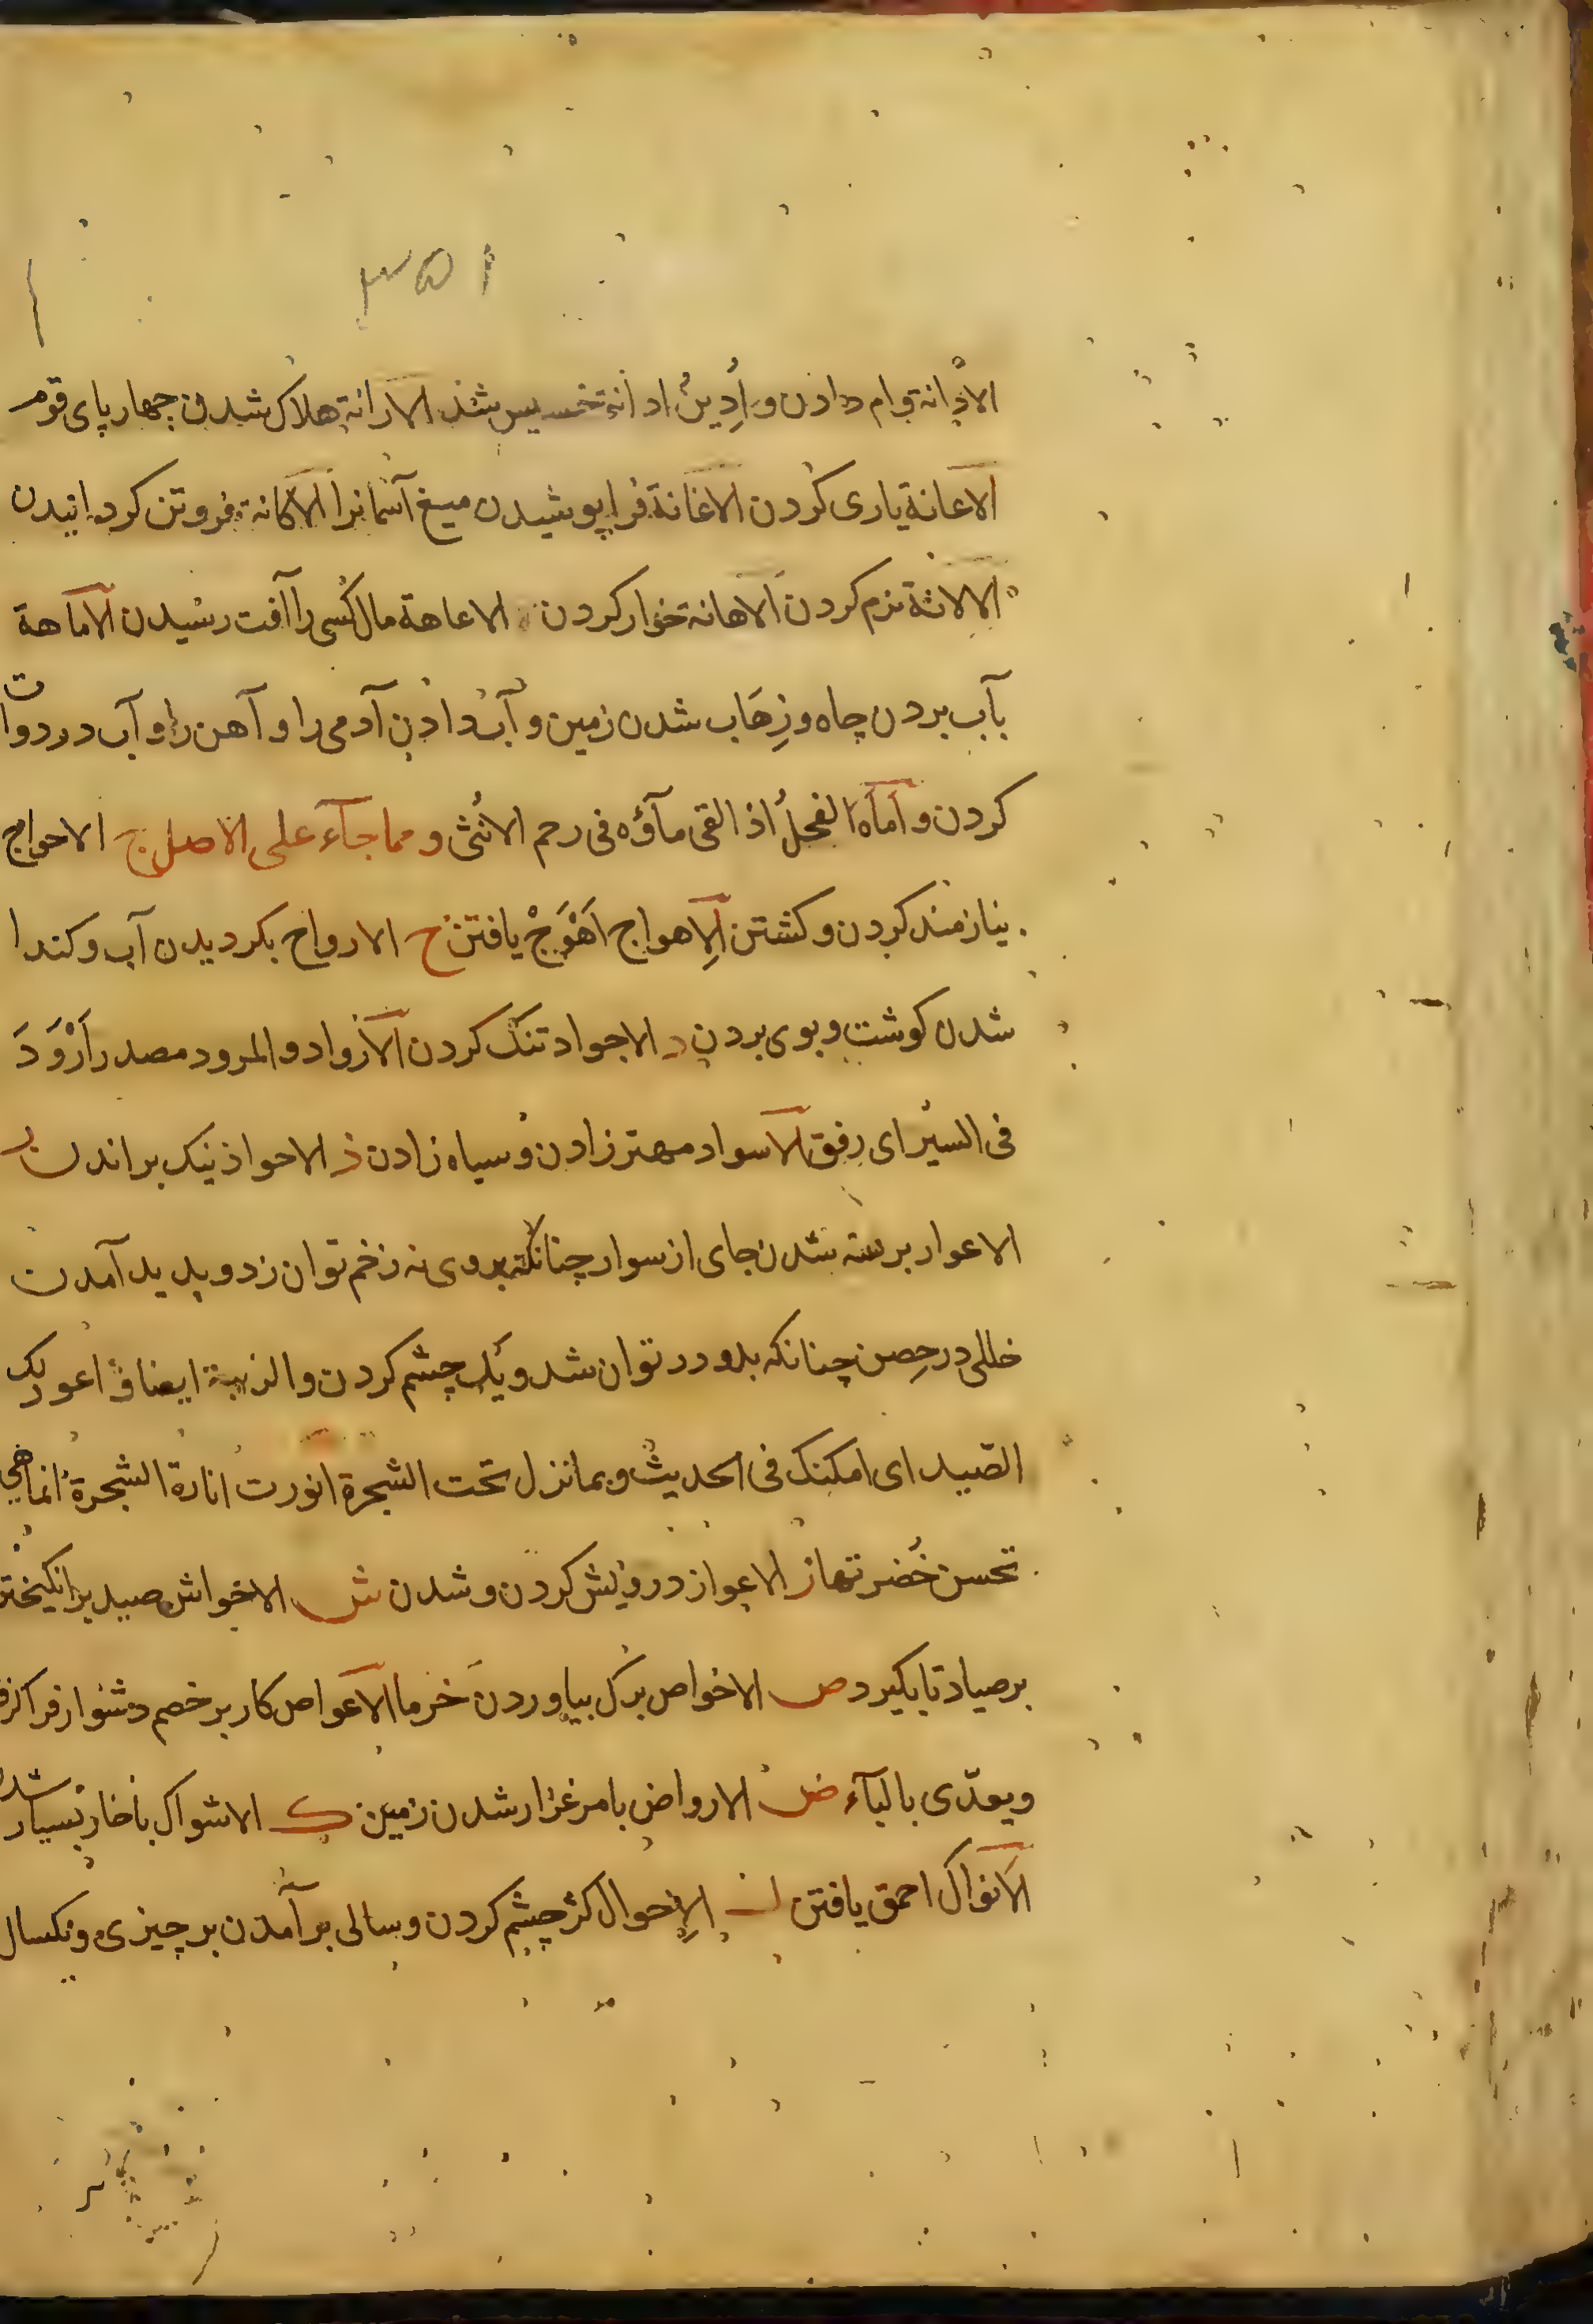 ۱۵۳
الادانة وام دادن و اُدِينُ ادانة خسيس شذ الارانة هلاک شدن چهارپای قوم
الاعانة یاری کردن الاغانة فراپوشیدن میغ آسمانرا الاکانة فروتن کردانیدن
الالانة نرم کردن الاهانة خوار کردن الاعاهة مال کسی را آفت رسیدن الاماهة
بآب بردن چاه و زِهَاب شدن زمین و آب دادن آدمی را و آهن را و آب در دوات
کردن و اماه الفحلُ اذا القی مآؤه فی رحم الانثی و مما جآء علی الاصل ج الاحواج
نیازمند کردن و کشتن الاهواج اَهْوَجْ یافتن ح الارواح بکردیدن آب و کندا
شدن کوشت و بوی بردن د الاجواد تنک کردن الارواد و المرود مصدر اَرْوَدَ
فی السیر ای رفق الاسواد مهتر زادن و سیاه زادن ذ الاحواذ نیک براندن ر
الاعوار برسته شدن جای از سوار چنانکه بروی نه زخم توان زد و پدید آمدن
خللی در حِصن چنانکه بدو در توان شد و یک چشم کردن و الذبیة ایضا و اعورک
الصید ای امکنک فی الحدیث و بما نزل تحت الشجرة انورت انارة الشجرة انما هی
تحسن خُضرتها ز الاعواز درویش کردن و شدن ش الاخواش صید برانکیختن
بر صیاد تا بکیرد ص الاخواص برک بیاوردن خرما الاعواص کار بر خصم دشوار فراکرفتن
و یعدّی بالبآء ض الارواض بامرغزار شدن زمین ک الاشواک باخار بسیار شدن
الانواک احمق یافتن ل الاحوال کژ چشم کردن و سالی برآمدن بر چیزی و یکسال